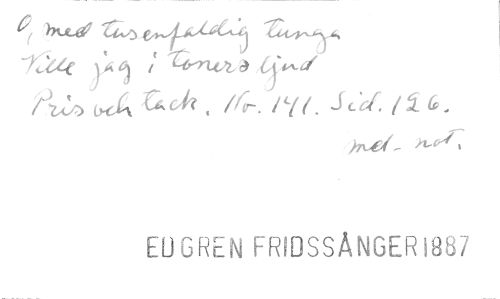 O, med tusenfaldig tunga
Ville jag i toners ljud
Pris och tack. No. 141. Sid. 126.
med not.
EDGREN FRIDSSÅNGER 1887